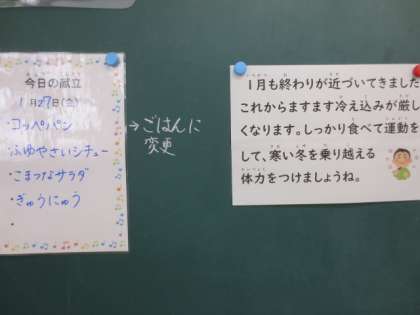 今日の献立
1月27日(金)
・コッペパン
・ふゆやさいシチュー
・こまつなサラダ
・ぎゅうにゅう
・
→ごはんに
変更
1月も終わりが近づいてきました
これからますます冷え込みが厳し
くなります。しっかり食べて運動を
して、寒い冬を乗り越える
体力をつけましょうね。